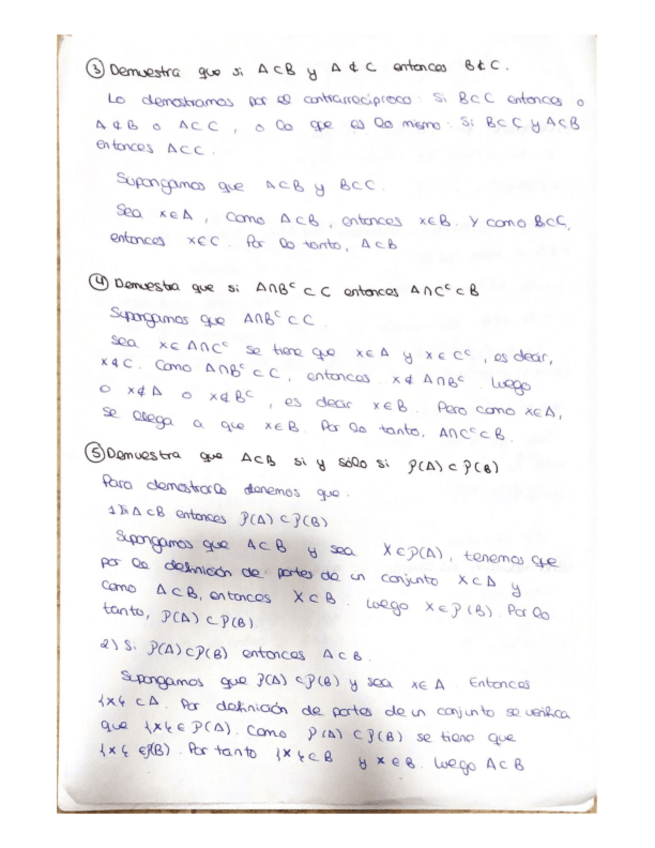 ③ Demuestra que si A⊂B y A⊄C entonces B⊄C.
Lo demostramos por el contrarrecíproco: Si B⊂C entonces o
A⊄B o A⊂C, o lo que es lo mismo: Si B⊂C y A⊂B
entonces A⊂C.
Supongamos que A⊂B y B⊂C.
Sea x∈A, como A⊂B, entonces x∈B. Y como B⊂C,
entonces x∈C. Por lo tanto, A⊂B
④ Demuestra que si A∩Bᶜ⊂C entonces A∩Cᶜ⊂B
Supongamos que A∩Bᶜ⊂C.
Sea x∈A∩Cᶜ se tiene que x∈A y x∈Cᶜ, es decir,
x∉C. Como A∩Bᶜ⊂C, entonces x∉A∩Bᶜ. Luego
o x∉A o x∉Bᶜ, es decir x∈B. Pero como x∈A,
se llega a que x∈B. Por lo tanto, A∩Cᶜ⊂B.
⑤ Demuestra que A⊂B si y sólo si P(A)⊂P(B)
Para demostrarlo tenemos que:
1) Si A⊂B entonces P(A)⊂P(B)
Supongamos que A⊂B y sea X∈P(A), tenemos que
por la definición de partes de un conjunto X⊂A y
como A⊂B, entonces X⊂B. Luego X∈P(B). Por lo
tanto, P(A)⊂P(B)
2) Si P(A)⊂P(B) entonces A⊂B.
Supongamos que P(A)⊂P(B) y sea x∈A. Entonces
{x}⊂A. Por definición de partes de un conjunto se verifica
que {x}∈P(A). Como P(A)⊂P(B) se tiene que
{x}∈P(B). Por tanto {x}⊂B y x∈B. Luego A⊂B